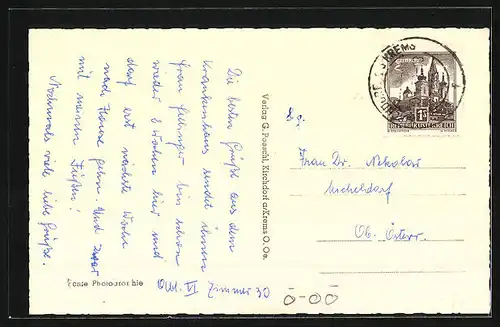 Die besten Grüße aus dem
Krankenhaus sendet ihnen
Frau Gehringer bin schon
wieder 6 Wochen hier und
darf erst nächste Woche
nach Hause gehn. Und zwar
mit meinen Füßen!
Nochmals viele liebe Grüße.
Abt. VI Zimmer 30
Echte Photographie
Verlag G. Poeschl, Kirchdorf a/Krems O. Oe.
KREMS
REPUBLIK ÖSTERREICH
Frau Dr. Nikolar
Micheldorf
Ob. Österr.